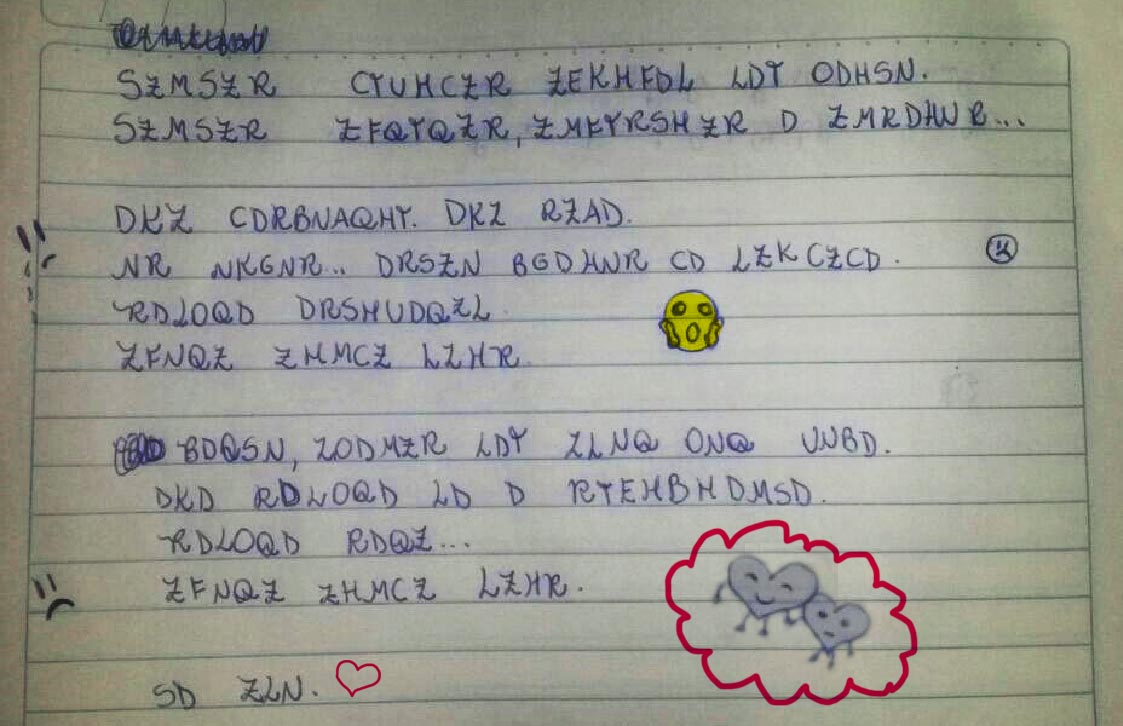 SZMSZR CTUHCZR ZEKHFDL LDT ODHSN.
SZMSZR ZFQTQZR, ZMFTRSHZR D ZMRDHNR...
DKZ CDRBNAQHT. DKZ RZAD.
NR NKGNR.. DRSZN BGDHNR CD LZKCZCD.
RDLOQD DRSHUDQZL.
ZFNQZ ZHMCZ LZHR.
BDQSN, ZODMZR LDT ZLNQ ONQ UNBD.
DKD RDLOQD LD D RTEHBHDMSD.
RDLOQD RDQZ...
ZFNQZ ZHMCZ LZHR.
SD ZLN.